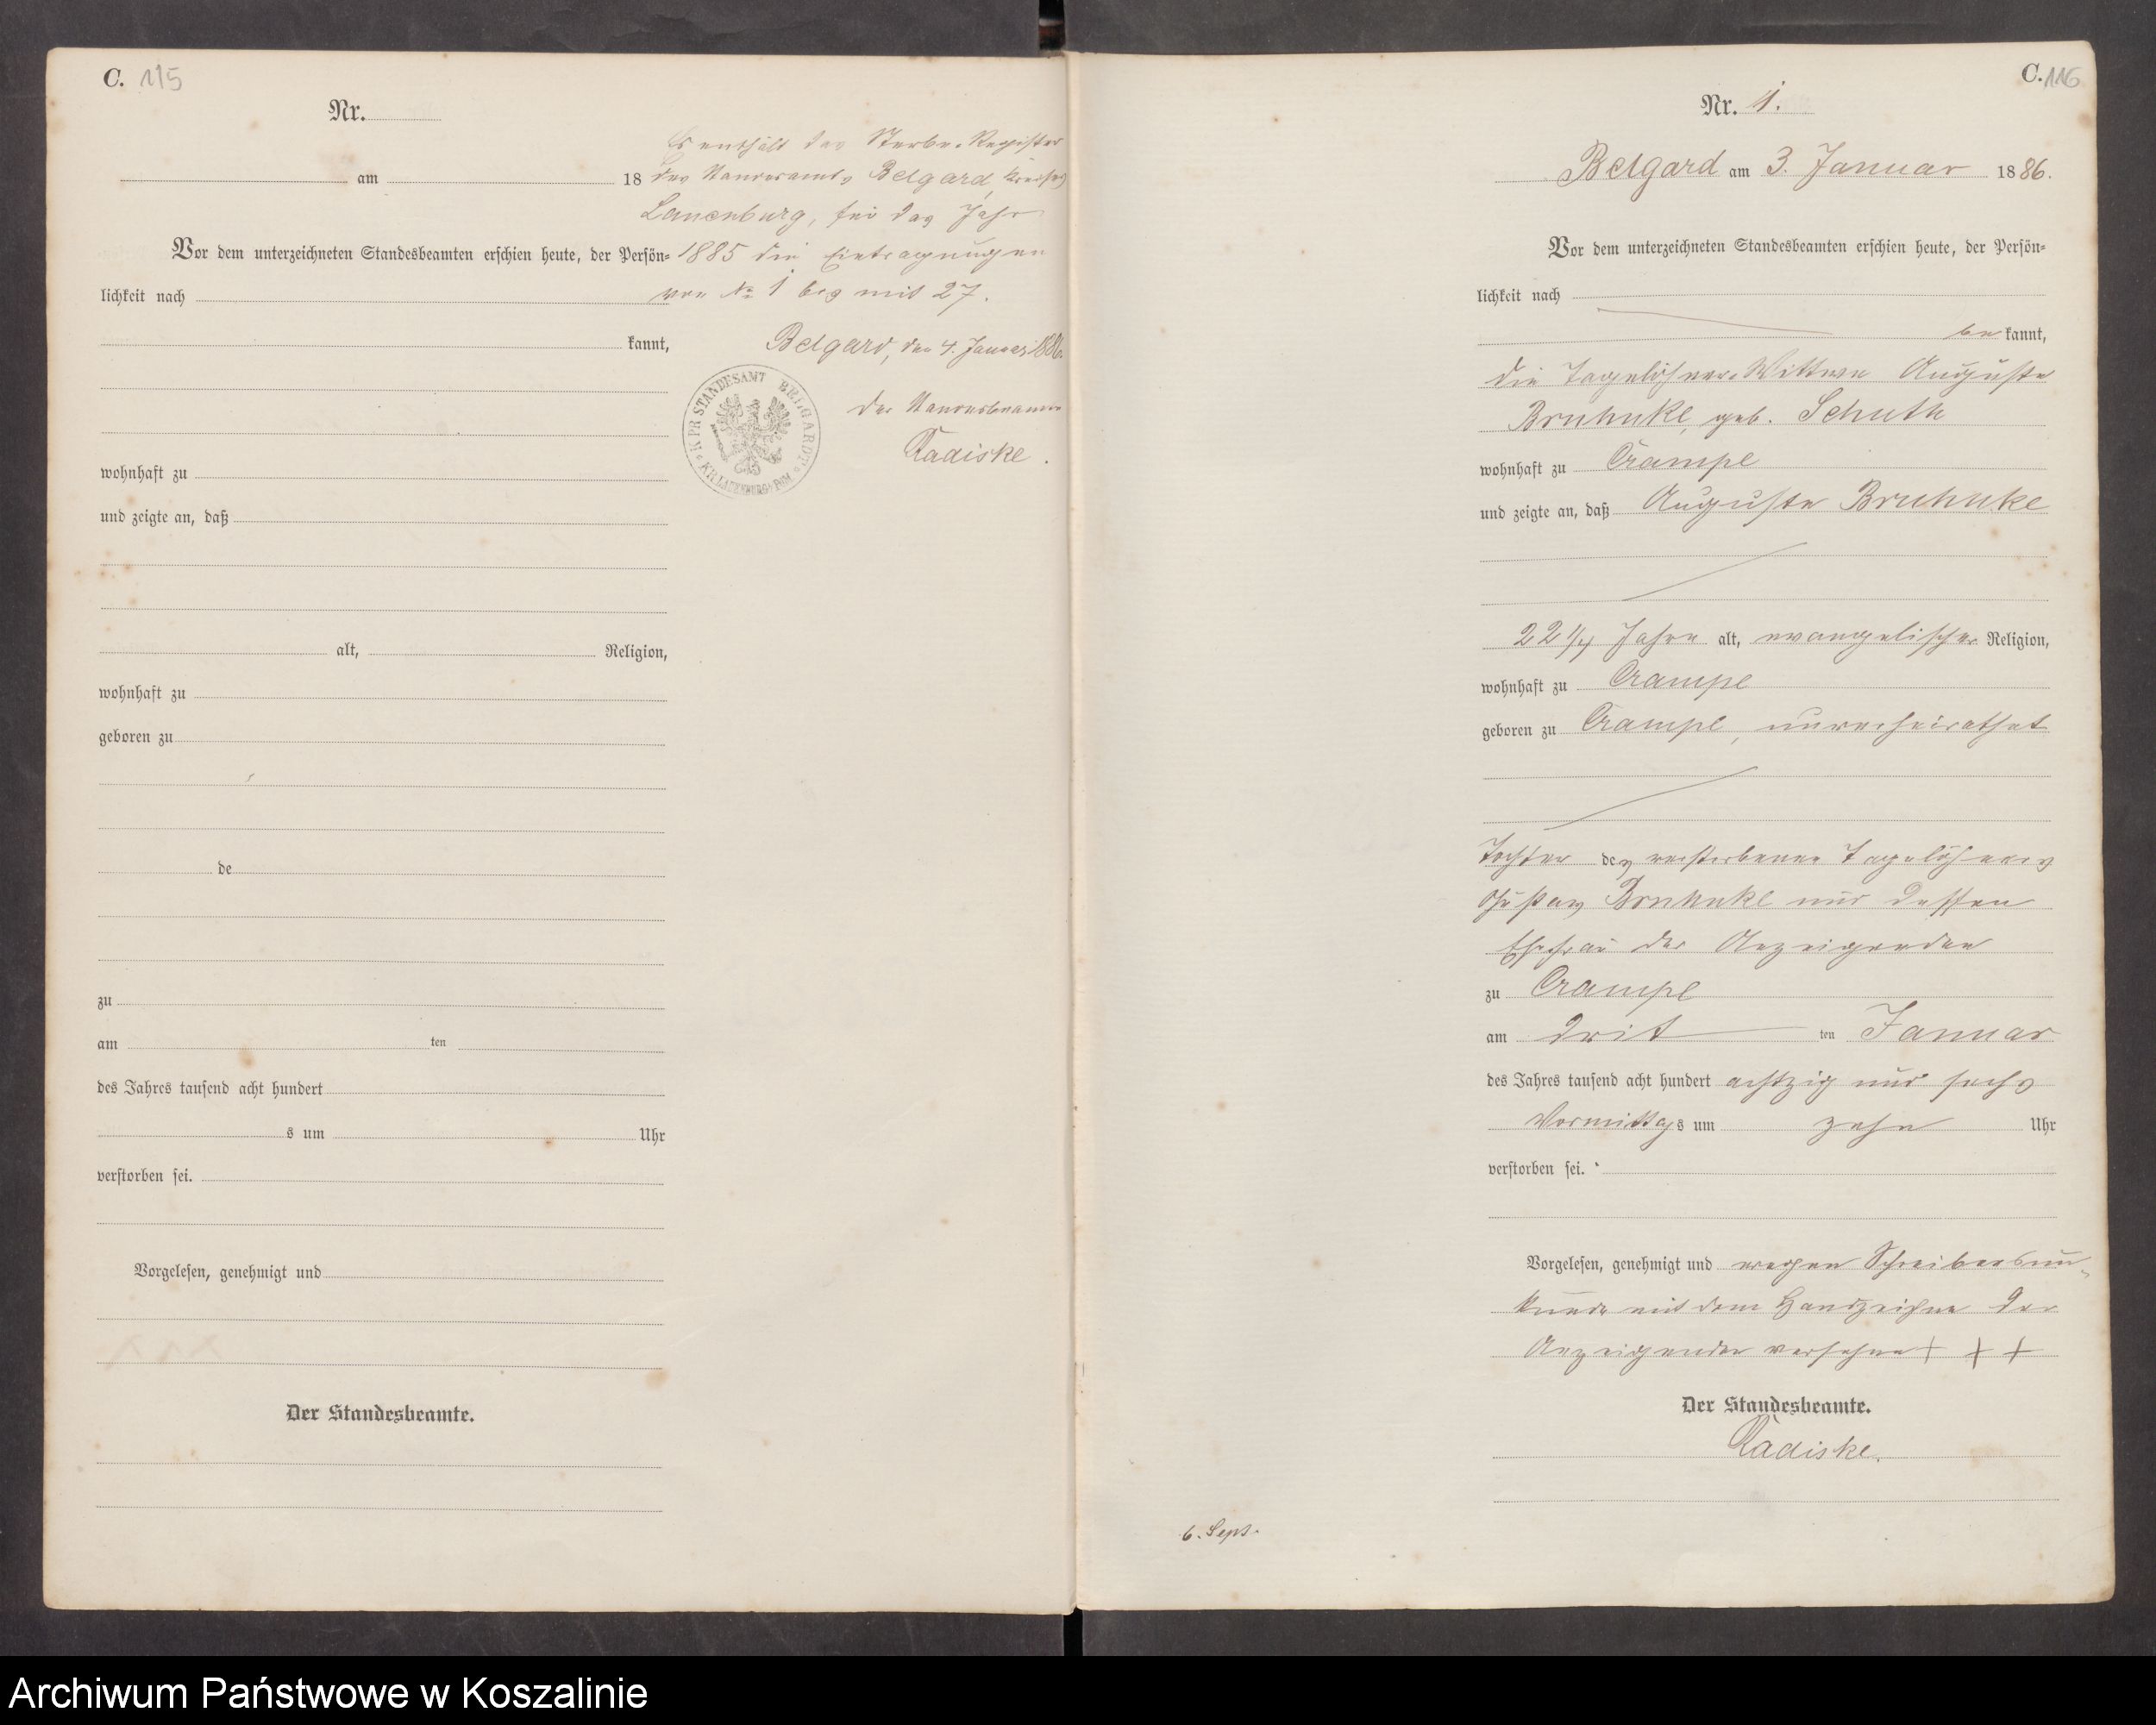 C. 115
Nr.
am 18
Vor dem unterzeichneten Standesbeamten erschien heute, der Persön-
lichkeit nach
kannt,
wohnhaft zu
und zeigte an, daß
alt, Religion,
wohnhaft zu
geboren zu
de
zu
am ten
des Jahres tausend acht hundert
s um Uhr
verstorben sei.
Vorgelesen, genehmigt und
Der Standesbeamte.
Es enthält das Sterbe-Register
des Standesamts Belgard, Kreises
Lauenburg, für das Jahr
1885 die Eintragungen
von No 1 bis mit 27.
Belgard, den 4. Januar 1886.
Der Standesbeamte
Radiske.
K. PR. STANDESAMT BELGARDT
KR. LAUENBURG i. POM
C. 116
Nr. 1.
Belgard am 3. Januar 1886.
Vor dem unterzeichneten Standesbeamten erschien heute, der Persön-
lichkeit nach
bekannt,
die Tagelöhner-Wittwe Auguste
Bruhnke, geb. Schuth
wohnhaft zu Crampe
und zeigte an, daß Auguste Bruhnke
22 1/4 Jahre alt, evangelischer Religion,
wohnhaft zu Crampe
geboren zu Crampe, unverheirathet
Tochter des verstorbenen Tagelöhners
Gustav Bruhnke und dessen
Ehefrau der Anzeigenden
zu Crampe
am drit ten Januar
des Jahres tausend acht hundert achtzig und sechs
Vormittags um zehn Uhr
verstorben sei.
Vorgelesen, genehmigt und wegen Schreibensun-
kunde mit dem Handzeichen der
Anzeigenden versehen + + +
Der Standesbeamte.
Radiske.
6. Sept.
Archiwum Państwowe w Koszalinie